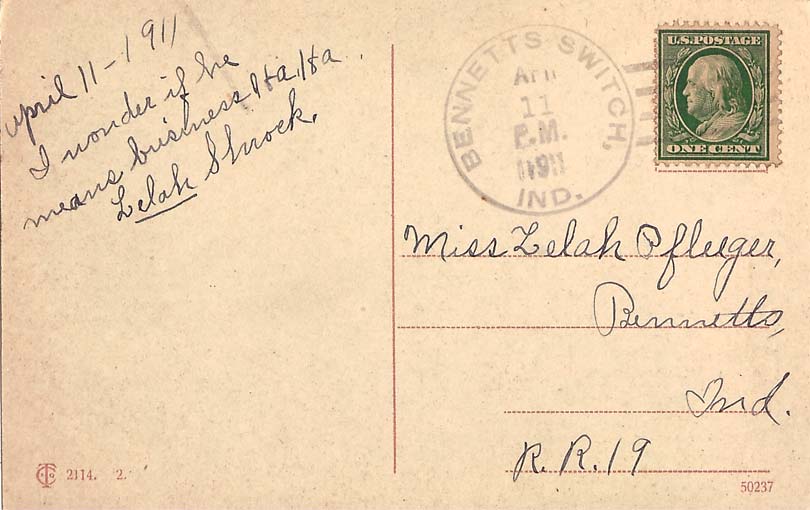 April 11-1911
I wonder if he
means business Ha Ha
Lelah Shrock.
BENNETTS SWITCH,
APR
11
P.M.
1911
IND.
U.S. POSTAGE
ONE CENT
Miss Lelah Pfluger,
Bennetts,
Ind.
R. R. 19
2114. 2.
50237